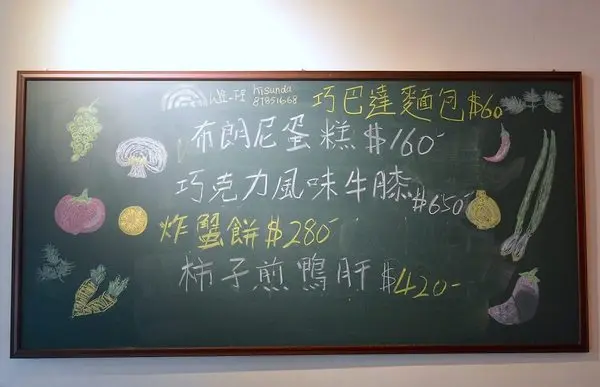 hisunda
巧巴達麵包$60
布朗尼蛋糕$160-
巧克力風味牛膝$650-
炸蟹餅$280-
柿子煎鴨肝$420-